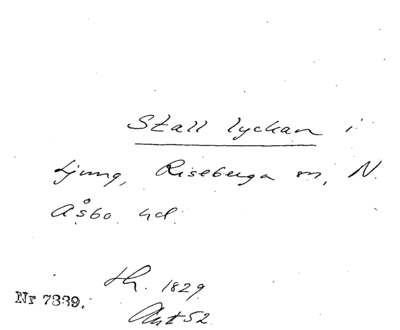 Stall lyckan i
Ljung, Riseberga sn, N.
Åsbo hd.
th. 1829
Akt 52
Nr 7339.